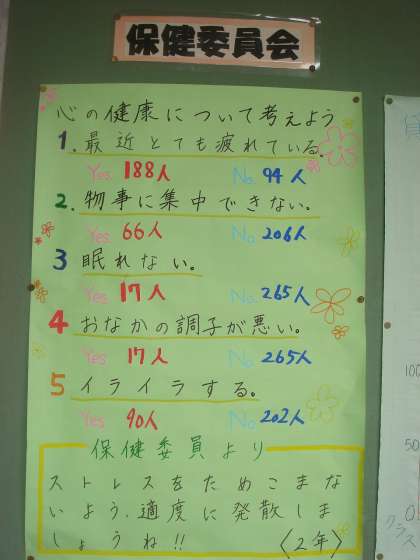 保健委員会
心の健康について考えよう
1.最近とても疲れている。
Yes 188人 No 94人
2.物事に集中できない。
Yes 66人 No 206人
3 眠れない。
Yes 17人 No 265人
4 おなかの調子が悪い。
Yes 17人 No 265人
5 イライラする。
Yes 90人 No 202人
保健委員より
ストレスをためこまな
いよう、適度に発散しま
しょうね!!〈2年〉
100
50
0
クラス